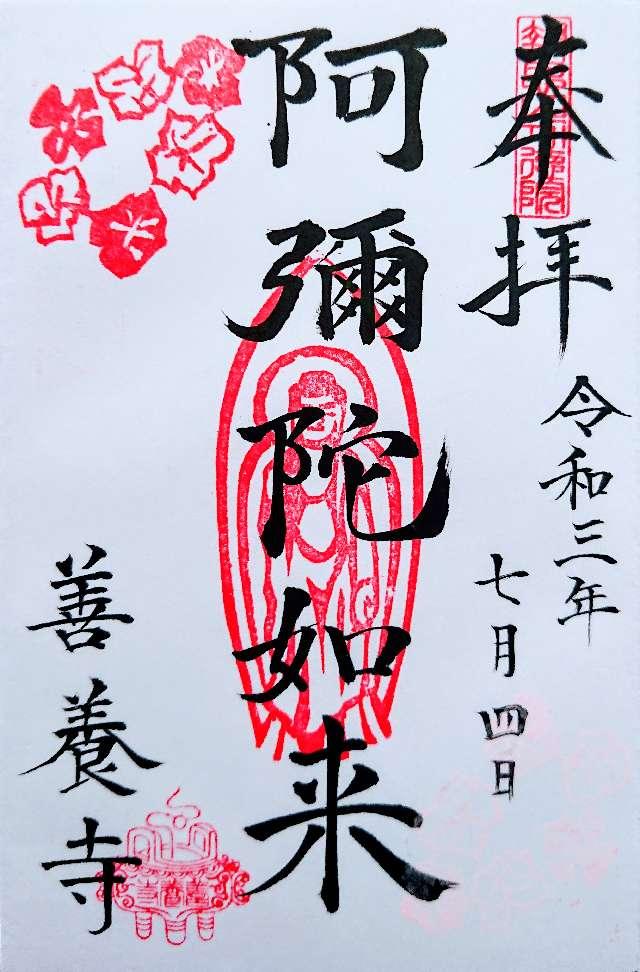 奉拝
令和三年
七月四日
阿彌陀如来
善養寺